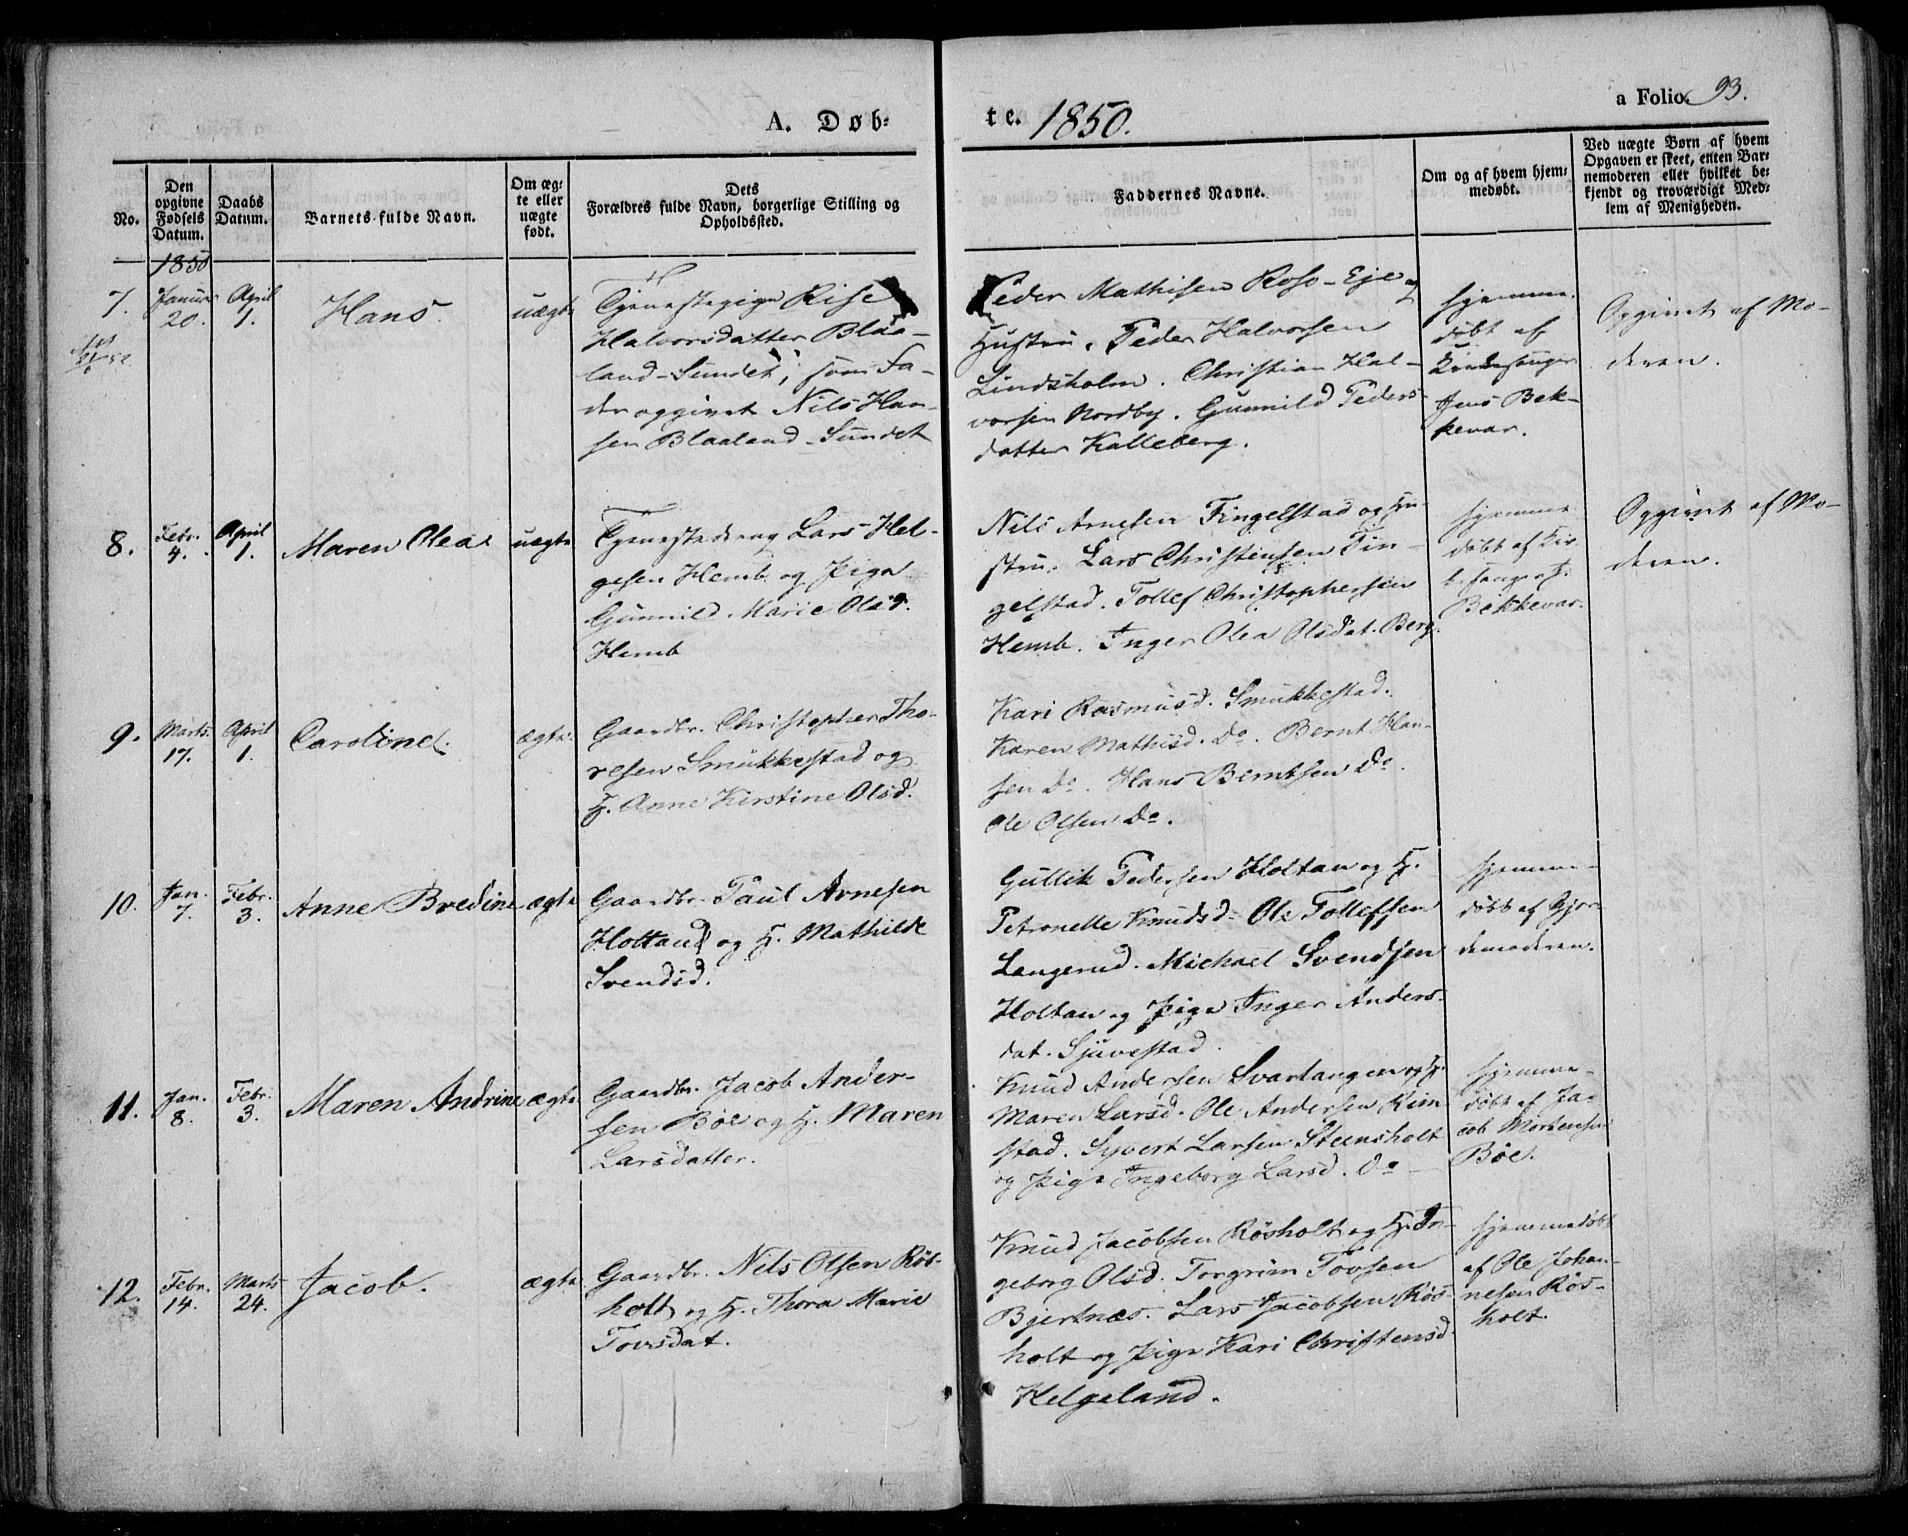 A. Døb-
te. 1850.
a Folio. 93.
No.
Den opgivne Fødsels Datum.
Daabs Datum.
Barnets fulde Navn.
Om ægte eller uægte født.
Dets Forældres fulde Navn, borgerlige Stilling og Opholdssted.
Faddernes Navne.
Om og af hvem hjemmedøbt.
Ved uægte Børn af hvem Opgaven er skeet, enten Barnemoderen eller hvilket bekjendt og troværdigt Medlem af Menigheden.
1850
7.
Januar 20.
April 1.
Hans.
uægte
Tjenestepige Rise
Halvorsdatter Blaa-
land-Sundet; som Fa-
der opgivet Nils Han-
sen Blaaland-Sundet
Peder Mathisen Roso-Eje og
Hustru. Peder Halvorsen
Lindsholm. Christian Hal-
vorsen Nordby. Gunnild Peders-
datter Kalleberg.
hjemme-
døbt af
Kirkesanger
Jens Bek-
kevar.
Opgivet af Mo-
deren.
8.
Febr. 4.
April 1.
Maren Olea
uægte
Tjenestedreng Lars Hel-
gesen Hemb og Pige
Gunnild Marie Olsd.
Hemb
Nils Arnesen Fingelstad og Hu-
stru. Lars Christensen Tin-
gelstad. Tollef Christophersen
Hemb. Inger Olea Olsdat. Berg.
hjemme-
døbt af Kir-
kesanger J.
Bekkevar.
Opgivet af Mo-
deren.
9.
Marts. 17.
April 1.
Caroline.
ægte.
Gaardbr. Christopher Tho-
resen Smukkestad og
H. Anne Kirstine Olsd.
Kari Rasmusd. Smukkestad.
Karen Mathisd. Do. Bernt Han-
sen Do. Hans Berntsen Do.
Ole Olsen Do.
10.
Jan. 7.
Febr. 3.
Anne Bredine
ægte
Gaardbr. Paul Arnesen
Holtan og H. Mathilde
Svendsd.
Gullik Pedersen Holtan og H.
Petronelle Knudsd. Ole Tollefsen
Langerud. Michael Svendsen
Holtan og Pige Inger Anders-
dat. Sjuvestad.
hjemme-
døbt af Gjor-
demoderen.
11.
Jan. 8.
Febr. 3.
Maren Andrine
ægte
Gaardbr. Jacob Ander-
sen Bøe og H. Maren
Larsdatter.
Knud Andersen Svartangen og H.
Maren Larsd. Ole Andersen Rim-
stad. Syvert Larsen Steensholt
og Pige Ingeborg Larsd. Do
hjemme-
døbt af Ja-
cob Mortensen
Bøe.
12.
Febr. 14.
Marts 24.
Jacob.
ægte
Gaardbr. Nils Olsen Røs-
holt og H. Thora Marie
Tovsdat.
Knud Jacobsen Røsholt og H. In-
geborg Olsd. Torgrim Tovsen
Bjertnæs. Lars Jacobsen Røs-
holt og Pige Kari Christensd.
Helgeland.
hjemmedøbt
af Ole Johan-
nesen Røs-
holt.